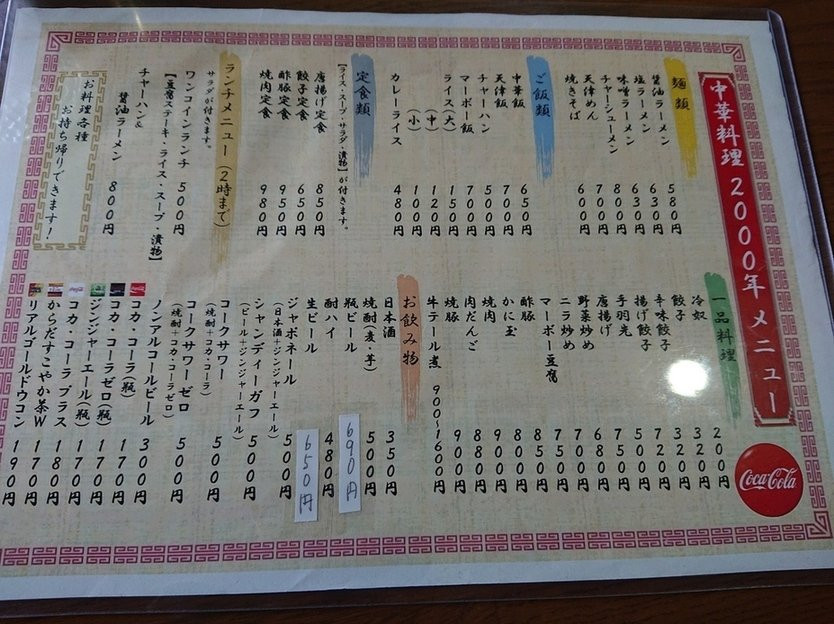 中華料理 2000年 メニュー
麺類
醤油ラーメン 580円
塩ラーメン 630円
味噌ラーメン 630円
チャーシューメン 800円
天津めん 700円
焼きそば 600円
ご飯類
中華飯 650円
天津飯 700円
チャーハン 500円
マーボー飯 700円
ライス(大) 150円
(中) 120円
(小) 100円
カレーライス 480円
定食類
【ライス・スープ・サラダ・漬物】が付きます。
唐揚げ定食 850円
餃子定食 650円
酢豚定食 950円
焼肉定食 980円
ランチメニュー(2時まで)
サラダが付きます。
ワンコインランチ 500円
【豆腐ステーキ・ライス・スープ・漬物】
チャーハン&
醤油ラーメン 800円
お料理各種
お持ち帰りできます！
一品料理
冷奴 200円
餃子 320円
辛味餃子 320円
揚げ餃子 720円
手羽先 500円
唐揚げ 750円
野菜炒め 680円
ニラ炒め 700円
マーボー豆腐 750円
酢豚 850円
かに玉 800円
焼肉 900円
肉だんご 880円
焼豚 900円
牛テール煮 900〜1600円
お飲み物
日本酒 350円
焼酎(麦・芋) 500円
瓶ビール 690円
酎ハイ 480円
生ビール 650円
ジャポネール 500円
(日本酒+ジンジャーエール)
シャンディーガフ 500円
(ビール+ジンジャーエール)
コークサワー 500円
(焼酎+コカ・コーラ)
コークサワーゼロ 500円
(焼酎+コカ・コーラゼロ)
ノンアルコールビール 300円
コカ・コーラ(瓶) 170円
コカ・コーラゼロ(瓶) 170円
ジンジャーエール(瓶) 170円
コカ・コーラ プラス 180円
からだすこやか茶W 170円
リアルゴールドウコン 190円
Coca-Cola